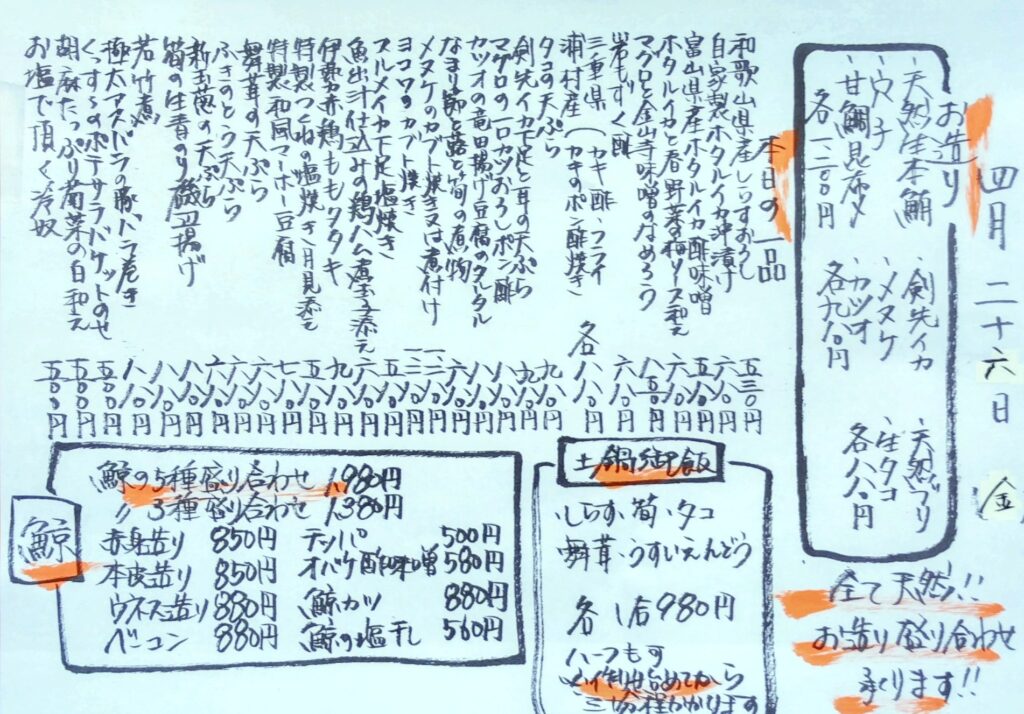 四月二十六日 金
お造り
・天然生本鮪
・ウニ
・甘鯛昆布〆
各一二〇〇円
・剣先イカ
・メヌケ
・カツオ
各九八〇円
・天然ブリ
・生タコ
各八八〇円
全て天然!!
お造り盛り合わせ
承ります!!
本日の一品
和歌山県産しらすおろし 五三〇円
自家製ホタルイカ沖漬け 六八〇円
富山県産ホタルイカ酢味噌
ホタルイカと春野菜の梅ソース和え
マグロと金山寺味噌のなめろう
岩もずく酢 六八〇円
三重県 (カキ酢・フライ
浦村産 (カキのポン酢焼き 各八八〇円
タコの天ぷら 九八〇円
剣先イカ下足と耳の天ぷら 九八〇円
マグロの一口カツおろしポン酢 八八〇円
カツオの竜田揚げ豆腐のタルタル 八八〇円
なまり節と蕗と筍の煮物 六八〇円
メヌケのカブト焼き又は煮付け
ヨコワのカブト焼き
スルメイカ下足塩焼き 八八〇円
魚出汁仕込みの鶏ハム煮玉子添え 六八〇円
伊勢赤鶏ももタタキ 九八〇円
特製つくねの塩焼き月見添え 五八〇円
特製和風マーボー豆腐 七八〇円
舞茸の天ぷら 六八〇円
ふきのとう天ぷら 六八〇円
新玉葱の天ぷら 六八〇円
筍の生青のり磯辺揚げ 八八〇円
若竹煮 八八〇円
極太アスパラの豚バラ巻き 八八〇円
くっすぅのポテサラバケットのせ 五五〇円
胡麻たっぷり菊菜の白和え 五八〇円
お塩で頂く冷奴 五五〇円
土鍋御飯
・しらす・筍・タコ
舞茸・うすいえんどう
各1合980円
ハーフもす
☆作り始めてから
三十分程かかります
鯨
鯨の5種盛り合わせ 1,980円
〃 3種盛り合わせ 1,380円
赤身造り 850円
本皮造り 850円
ウネス造り 880円
ベーコン 880円
テッパ 500円
オバケ酢味噌 580円
鯨カツ 880円
鯨の塩干し 560円